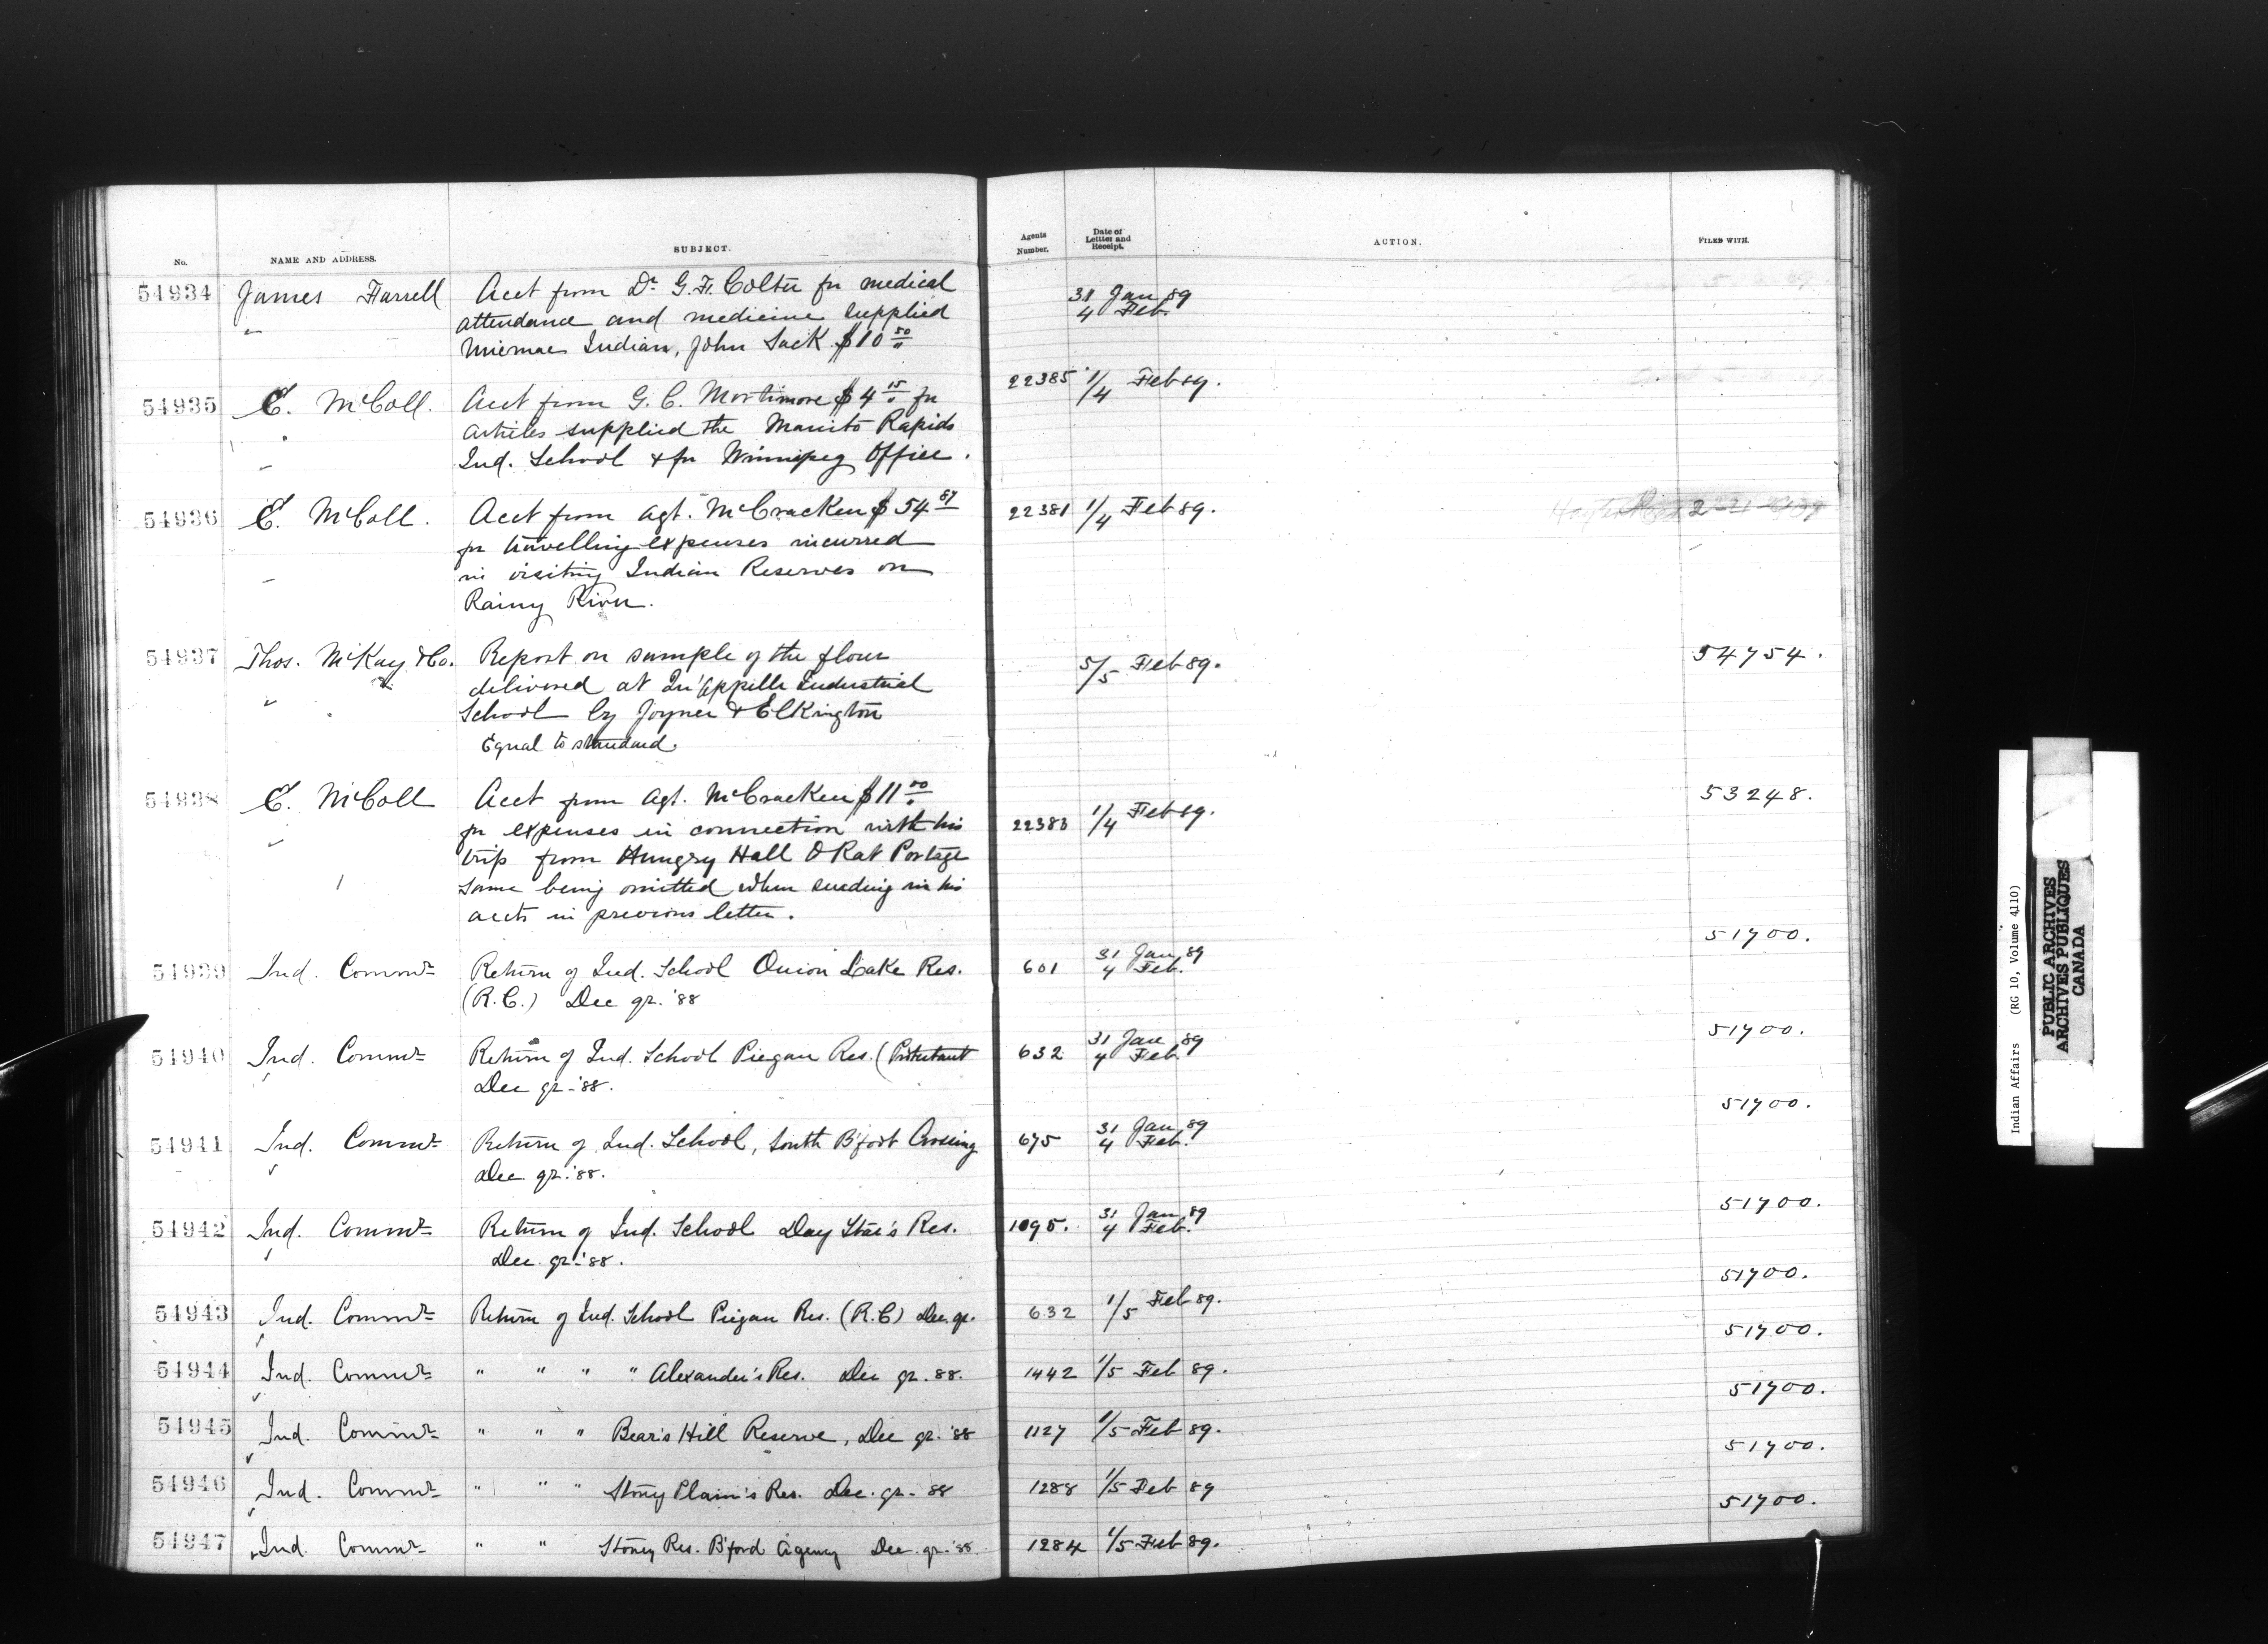 No. NAME AND ADDRESS. SUBJECT. Agents Number. Date of Letter and Receipt. ACTION. FILED WITH.
54934 James Farrell Acct from Dr. G. F. Colter for medical 31 Jan 89
attendance and medicine supplied 4 Feb.
Micmac Indian, John Sack $10 50
54935 E. McColl. Acct from G. C. Mortimore $4 15 for 22385 1/4 Feb 89.
articles supplied the Manito Rapids
Ind. School & for Winnipeg Office.
54936 E. McColl. Acct from Agt. McCracken $54 87 22381 1/4 Feb 89.
for travelling expenses incurred
in visiting Indian Reserves on
Rainy River.
54937 Thos. McKay & Co. Report on sample of the flour 5/5 Feb 89. 54754.
delivered at Qu'Appelle Industrial
School by Joyner & Elkington
Equal to standard.
54938 E. McColl Acct from Agt. McCracken $11 00 53248.
for expenses in connection with his 22383 1/4 Feb 89.
trip from Hungry Hall & Rat Portage
same being omitted when sending in his
accts in previous letter.
51700.
54939 Ind. Commr Return of Ind. School Onion Lake Res. 601 31 Jan 89
(R.C.) Dec qr. '88 4 Feb.
51700.
54940 Ind. Commr Return of Ind. School Piegan Res. (Protestant 632 31 Jan 89
Dec qr. '88. 4 Feb
51700.
54941 Ind. Commr Return of Ind. School, South B'foot Crossing 675 31 Jan 89
Dec. qr. '88. 4 Feb.
51700.
54942 Ind. Commr Return of Ind. School Day Star's Res. 1095. 31 Jan 89
Dec. qr. '88. 4 Feb.
51700.
54943 Ind. Commr Return of Ind. School Piegan Res. (R.C) Dec. qr. 632 1/5 Feb 89.
51700.
54944 Ind. Commr " " " " Alexander's Res. Dec qr. 88. 1442 1/5 Feb 89.
51700.
54945 Ind. Commr " " " Bear's Hill Reserve, Dec qr. '88 1127 1/5 Feb 89.
51700.
54946 Ind. Commr " " " Stony Plain's Res. Dec. qr. 88 1288 1/5 Feb 89
51700.
54947 Ind. Commr " " Stoney Res. B'ford Agency Dec. qr. '88 1284 1/5 Feb 89.
Indian Affairs (RG 10, Volume 4110)
PUBLIC ARCHIVES
ARCHIVES PUBLIQUES
CANADA